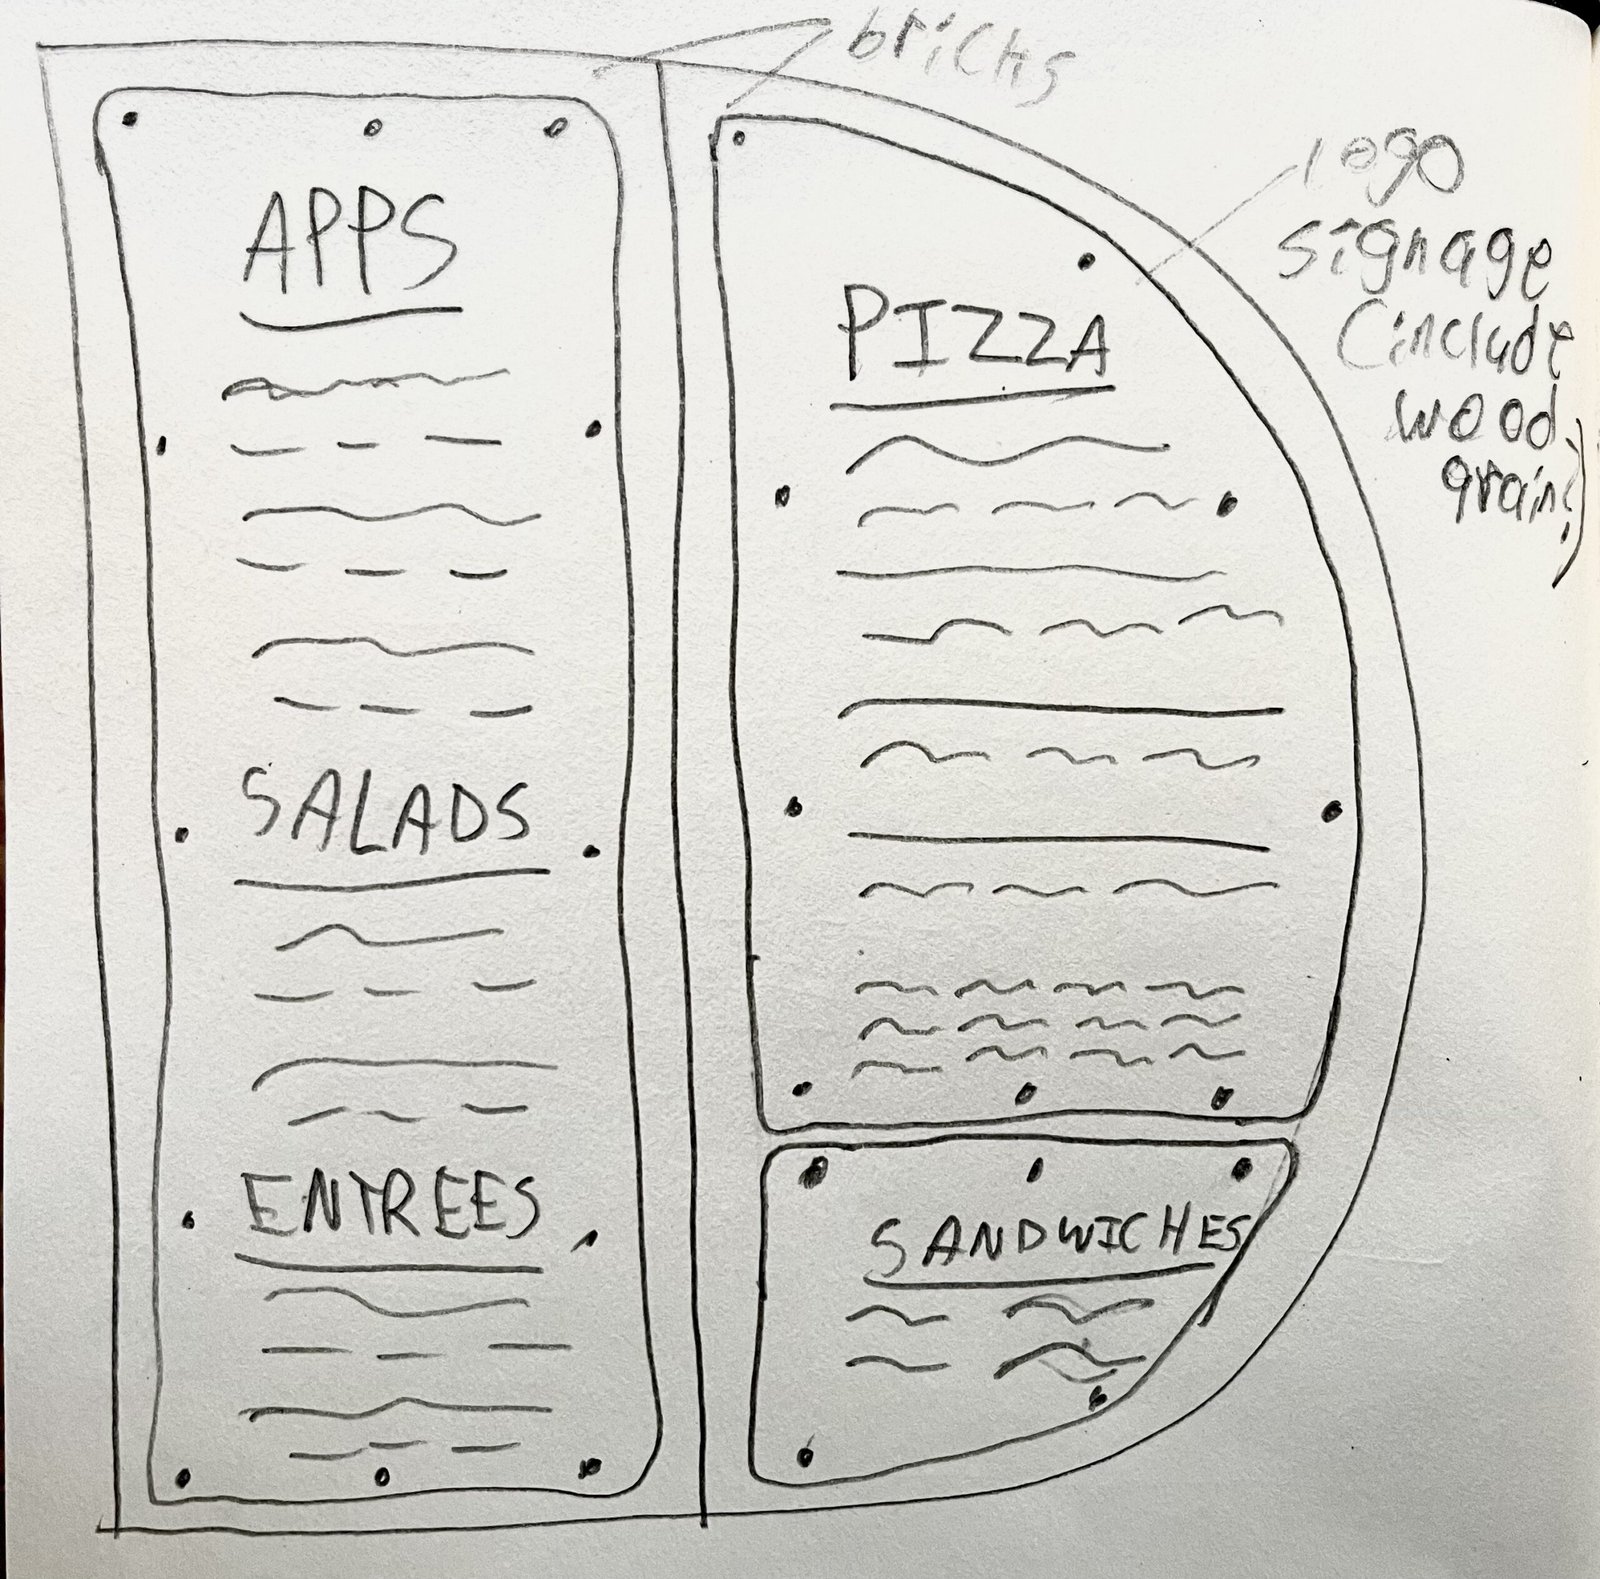 bricks
logo
signage
(include
wood
grain?)
APPS
SALADS
ENTREES
PIZZA
SANDWICHES